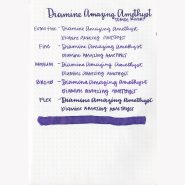 Diamine Amazing Amethyst
Extra Fine - Diamine Amazing Amethyst
Diamine Amazing Amethyst
Fine - Diamine Amazing Amethyst
Diamine Amazing Amethyst
Medium - Diamine Amazing Amethyst
Diamine Amazing Amethyst
Broad - Diamine Amazing Amethyst
Diamine Amazing Amethyst
Flex - Diamine Amazing Amethyst
Diamine Amazing Amethyst